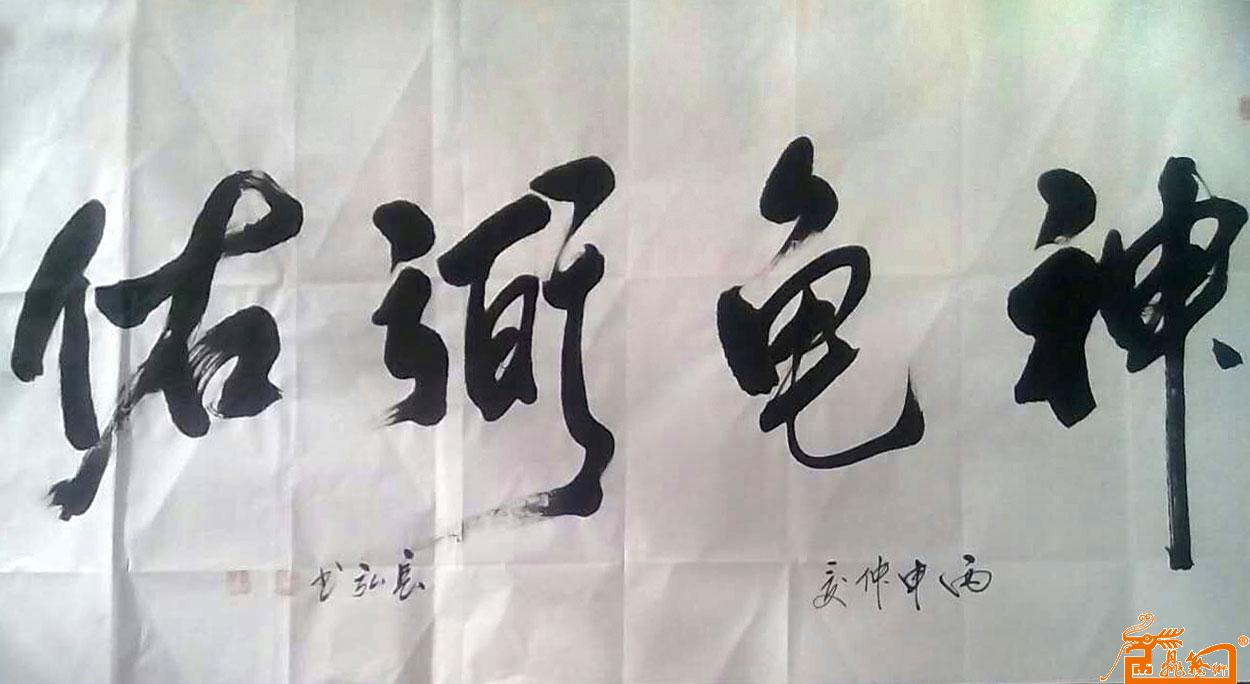 神龟弼佑
丙申仲夏
長弘书